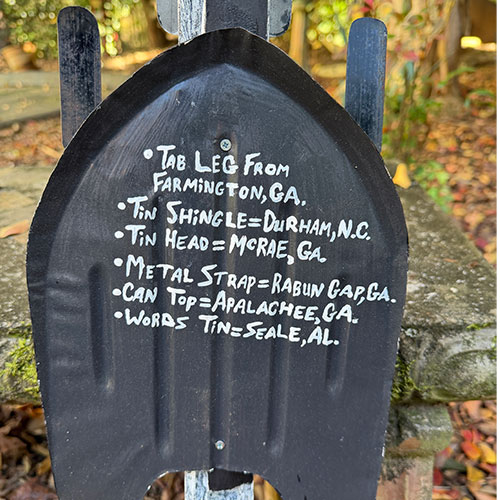 • TAB LEG FROM
FARMINGTON, GA.
• TIN SHINGLE = DURHAM, N.C.
• TIN HEAD = MCRAE, GA.
• METAL STRAP = RABUN GAP, GA.
• CAN TOP = APALACHEE, GA.
• WORDS TIN = SEALE, AL.